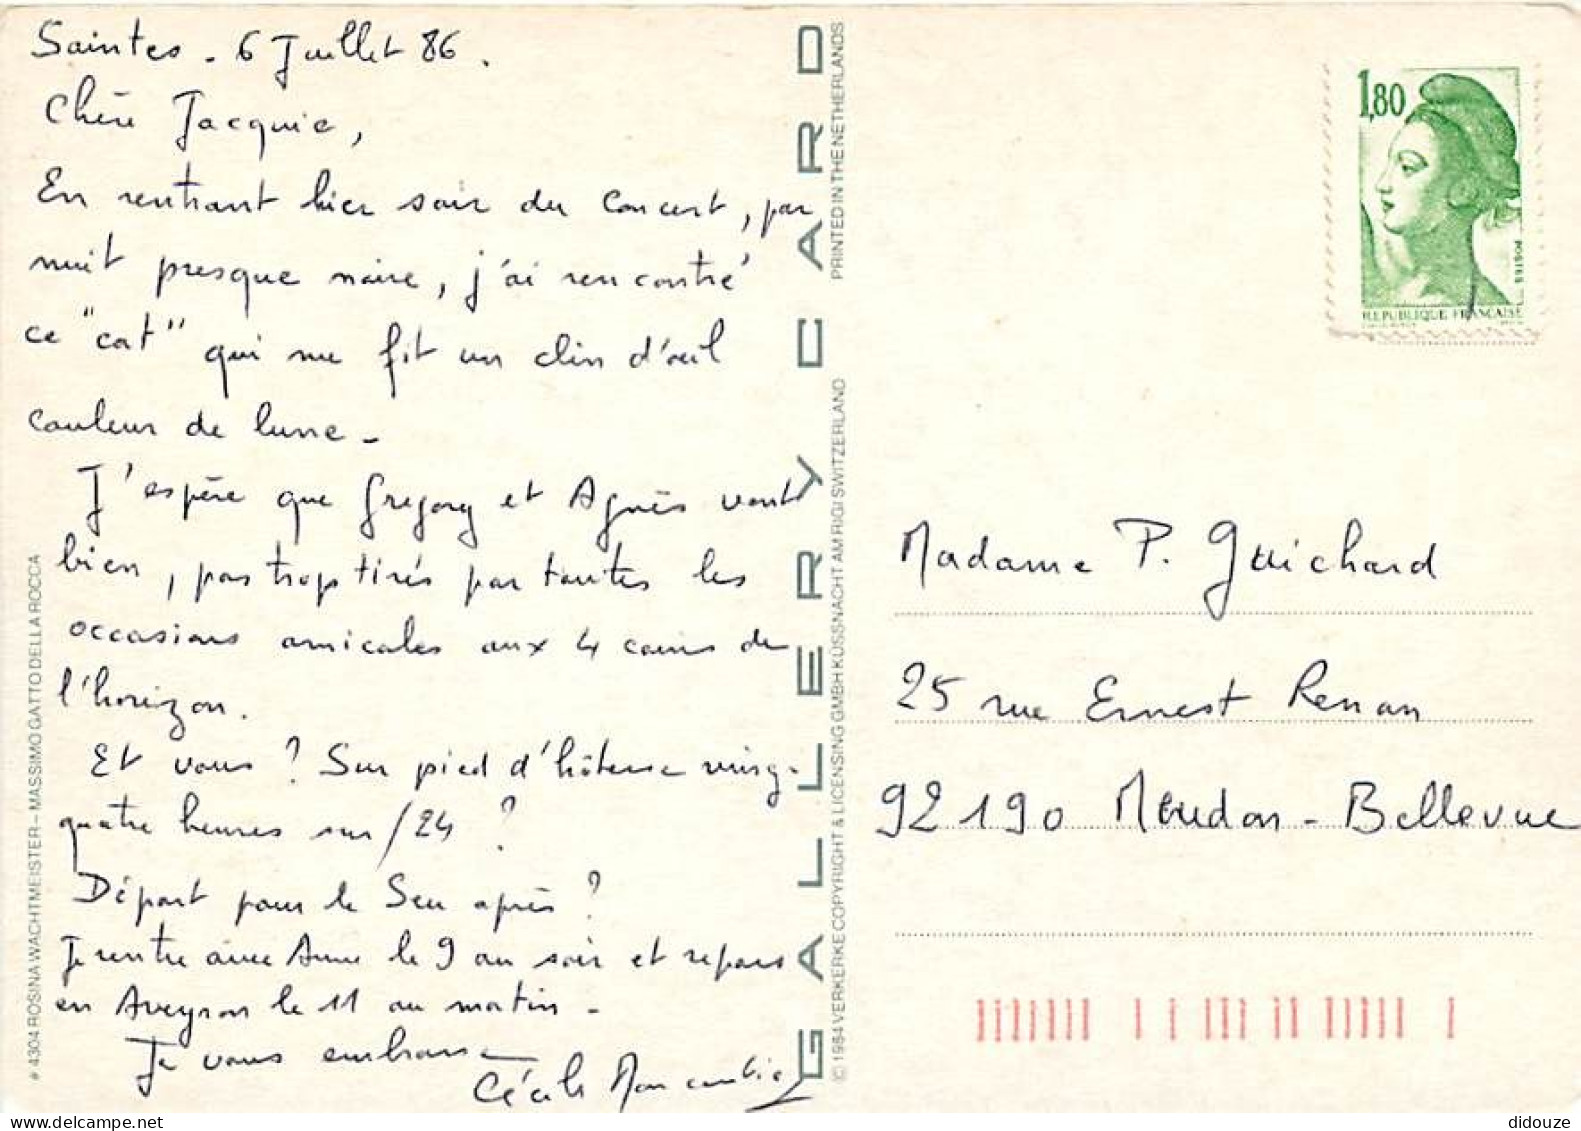 Saintes - 6 Juillet 86.
Chère Jacquie,
En rentrant hier soir du concert, par
nuit presque noire, j'ai rencontré
ce "cat" qui me fit un clin d'œil
couleur de lune -
J'espère que Gregory et Agnès vont
bien, pas trop tirés par toutes les
occasions amicales aux 4 coins de
l'horizon.
Et vous ? Sur pied d'hôtesse vingt-
quatre heures sur /24 ?
Départ pour le Sud après ?
Je rentre avec Anne le 9 au soir et repars
en Aveyron le 11 au matin -
Je vous embrasse
Cécile
# 4304 ROSINA WACHTMEISTER – MASSIMO GATTO DELLA ROCCA
GALLERY CARD
© 1984 VERKERKE COPYRIGHT & LICENSING GMBH KÜSSNACHT AM RIGI SWITZERLAND
PRINTED IN THE NETHERLANDS
1,80
POSTES
REPUBLIQUE FRANÇAISE
Madame P. Guichard
25 rue Ernest Renan
92190 Meudon - Bellevue
didouze